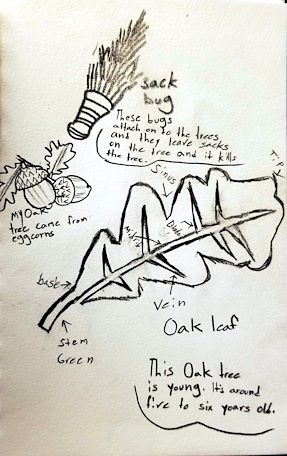 sack
bug
These bugs
attach on to the trees
and they leave sacks
on the tree and it kills
the tree.
Tip
Sinus
My Oak
tree came from
eggcorns
base
Vein
Stem
Green
Oak leaf
This Oak tree
is young. It's around
five to six years old.